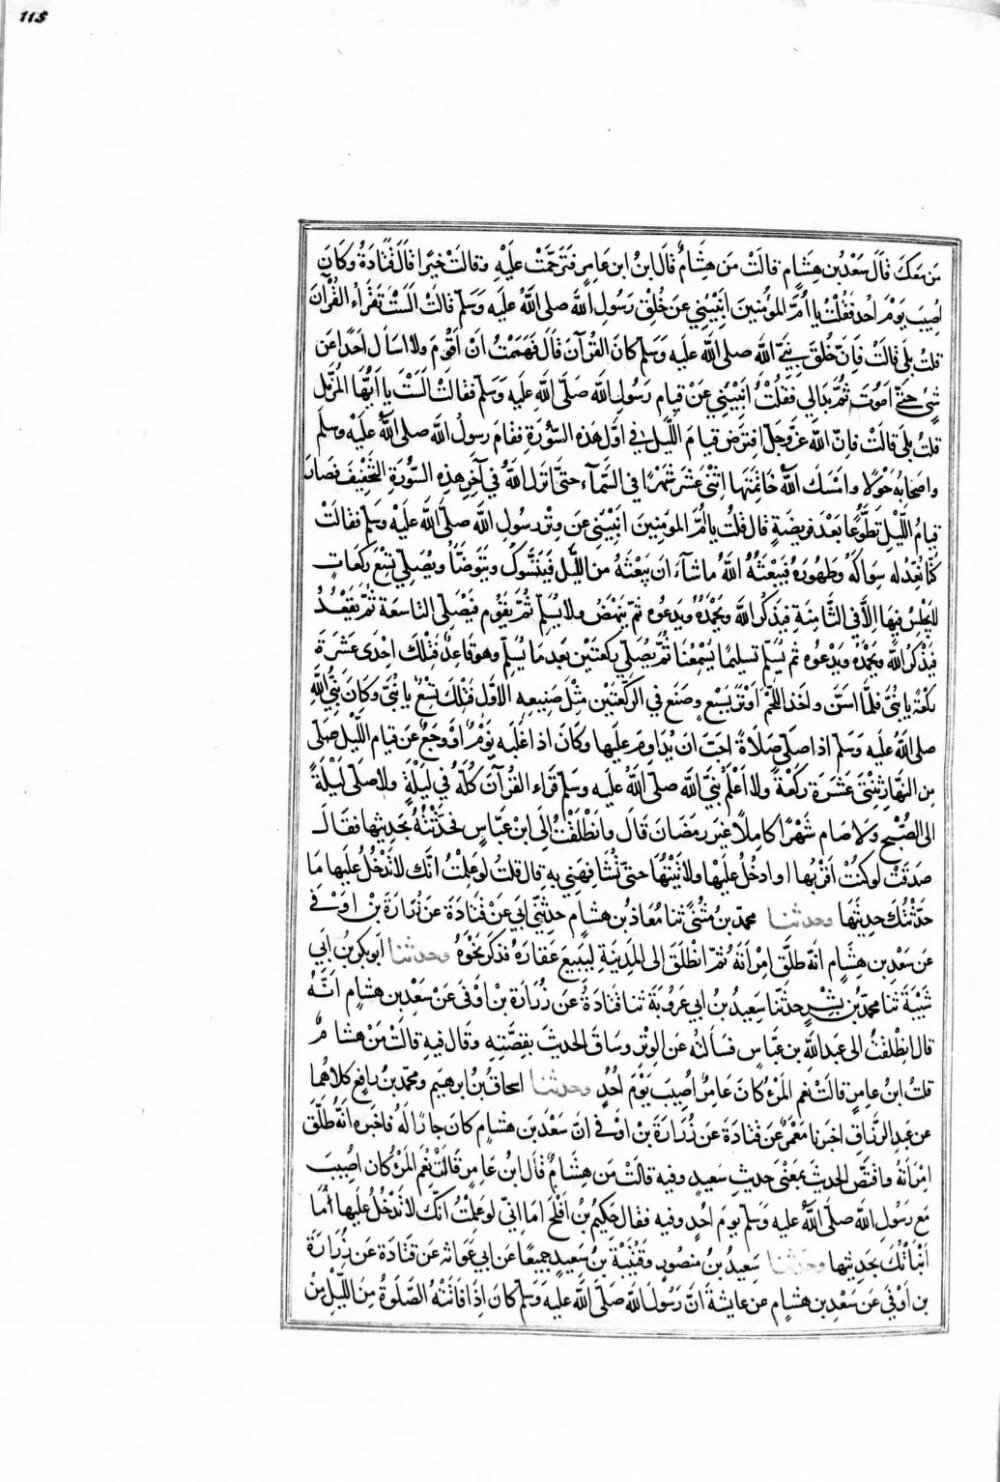 115
مَن مَعَكَ قَالَ سَعْدُ بن هِشَامٍ قالَتْ مَن هِشَامٌ قَالَ ابنُ ابن عَامِرٍ فَتَرَحَّمَتْ عليْهِ وقالَتْ خَيرًا قَالَ قَتَادَةُ وَكَانَ
اُصِيبَ يَوْمَ اُحُدٍ فقُلْتُ يا اُمَّ المؤْمِنينَ انْبِئِينِي عَن خُلُقِ رَسُولِ اللّهِ صلى اللّهُ عليه وَسَلم قالَتْ اَلَسْتَ تَقْرَاُ القُرْآنَ
قلتُ بلى قالَتْ فَاِنّ خُلُقَ نَبِيّ اللّه صلى اللّه عليه وَسَلم كانَ القُرْآنَ قَالَ فَهَمَمْتُ اَنْ اَقُومَ ولا اَسْاَل اَحَدًا عَن
شَيْءٍ حَتّى اَمُوتَ ثُمَّ بَدَا لي فَقُلْتُ اَنْبِئِينِي عَنْ قِيامِ رَسُولِ اللّه صَلّى اللّهِ عليهِ وَسَلّم فقالَتْ اَلَسْتَ يا اَيُّهَا المُزَّمِّل
قلتُ بلى قالَتْ فاِنّ اللّهَ عَزّوَجَلّ افتَرَضَ قيامَ اللّيلِ في اوّلِ هَذِه السُّورَةِ فقَامَ رسولُ اللّه صلى اللّه عليْه وسلم
واصحَابُهُ حَوْلًا واَمْسَكَ اللّهُ خَاتِمَتَهَا اِثْنَيْ عَشَرَ شَهْرًا في السَّمَآء حتىّ اَنزَلَ اللّهُ في آخِرِ هذِهِ السُّورَةِ التَّخْفِيفَ فصَارَ
قيامُ اللَّيْلِ تَطَوُّعًا بَعْدَ فَرِيضَةٍ قال قلتُ يا اُمَّ المؤمِنِينَ اَنْبِئِينِي عَن وِتْرِ رسولِ اللّهِ صلّى اللّه عليْهِ وسلم فقالَتْ
كُنّا نُعِدُّ لهُ سِوَاكَهُ وطَهُورَهُ فَيَبْعَثُهُ اللّهُ ما شآءَ اَن يَبْعَثَهُ من اللّيلِ فيَتَسَوَّكُ ويَتَوَضّاُ ويُصَلّي تِسْعَ رَكعَاتٍ
لايَجْلِسُ فِيهَا اِلاّ في الثّامِنَةِ فيَذكُرُ اللّهَ ويَحْمَدُهُ ويَدعُوهُ ثمّ يَنهَضُ ولا يُسَلِّمُ ثُمَّ يقومُ فيُصَلّي التاسعَةَ ثُمَّ يَقْعُدُ
فيَذكُرُ اللّهَ ويَحْمَدُهُ ويَدْعُوهُ ثم يُسَلِّم تسليمًا يُسْمِعُنَا ثُمَّ يُصَلّي رَكعتَيْن بَعدَ ما يُسَلِّم وهو قَاعِدٌ فتلكَ اِحْدَى عَشْرَةَ
رَكعَةً يا بُنَيَّ فلمّا اسَنَّ واَخَذ اللّحْمَ اَوْتَرَ بِسَبْعٍ وصَنَعَ في الرّكعَتَيْنِ مِثْلَ صَنِيعِهِ الاوَّل فتلكَ تِسْعٌ يا بُنَيَّ وكانَ نَبِيُّ اللّهِ
صلى اللّهُ عليه وَسَلم اذا صلَّى صَلَاةً اَحَبّ اَن يُدَاوِمَ عليها وكَانَ اذا غَلَبَهُ نَوْمٌ اَوْ وَجَعٌ عَن قيامِ اللّيْلِ صلّى
مِن النَّهَارِ ثِنْتَيْ عَشَرَةَ رَكْعَةً ولا اَعْلَمُ نَبِيَّ اللّهِ صلّى اللّهُ عليه وسَلمّ قَرَاَ القُرآنَ كُلّهُ في ليْلَةٍ ولا صَلّى لَيْلَةً
الى الصُّبْحِ ولَا صَامَ شَهْرًا كامِلًا غَيْرَ رَمَضَانَ قَالَ وانْطَلَقْتُ اِلَى ابْنِ عَبّاسٍ فحَدَّثْتُهُ بحَدِيثِها فقَالَ
صَدَقَتْ لوكُنْتُ اَقْرَبُهَا او ادخُلُ عليْهَا ولاتَيْتُهَا حتىّ تُشَافِهَنِي بهِ قال قلتُ لو عَلِمْتُ انّكَ لاتَدْخُلُ عليها ما
حَدّثْتُكَ حديثَهَا وحدثنا محمّد بن مُثَنّى ثنا مُعَاذ بن هشامٍ حدّثني ابي عَنْ قَتَادَةَ عَنْ زُرَارَةَ بن اوْفَى
عن سَعْدِ بن هِشَامٍ انّه طلَّقَ امْرَاَتَهُ ثُمَّ انْطَلَقَ الى المَدِينَةِ لِيَبِيعَ عَقَارَهُ فذكَرَ نَحْوَهُ وحدثنا ابو بكر بْنُ ابي
شَيْبَةَ ثنا محمّدُ بْنُ بِشْرٍ حدّثنا سَعِيدُ بن ابي عَرُوبَةَ ثنا قَتَادَةُ عَن زُرَارَةَ بن اَوْفَى عَن سَعْدِ بن هشامٍ اَنَّهُ
قَالَ انْطَلَقْتُ الى عَبدِ اللّهِ بن عَبّاسٍ فَسَاَلْتُهُ عَن الوِتْرِ وسَاقَ الحديثَ بِقِصَّتِهِ وقَالَ فيهِ قالَتْ مَن هشامٌ
قلتُ ابنُ عَامِرٍ قالَتْ نِعْمَ المَرْءُ كَانَ عَامِرٌ اُصِيبَ يَوْمَ اُحُدٍ وحدثنا اسحَاقُ بن ابرهيم ومحمّد بن رَافِعٍ كلاهُمَا
عن عَبد الرّزّاقِ اخبرنا مَعْمَرٌ عَن قتادَةَ عَن زُرَارَةَ بن اوْفَى انَّ سَعْدَ بن هشَامٍ كان جَارًا لَهُ فاَخبَرَه انّهُ طلّقَ
امْرَاَتَهُ واقتَصّ الحديثَ بمعْنَى حديثِ سَعِيدٍ وفيهِ قالَتْ مَن هِشَامٌ قَالَ ابن عَامِرٍ قَالَتْ نِعْمَ المَرْءُ كانَ اُصِيبَ
مَعَ رَسُولِ اللّه صلى اللّهُ عليه وَسَلم يومَ اُحُدٍ وفيهِ فقال حَكِيمُ بن اَفْلَحَ اَمَا اِنّي لوعَلِمْتُ انّكَ لاتَدْخُلُ عليها ما
اَنْبَاْتُكَ بحَدِيثِها وحدثنا سَعِيدُ بْنُ منصُورٍ وقُتَيْبَةُ بْنُ سَعِيدٍ جَمِيعًا عَن ابي عَوانَه عَن قَتَادَةَ عَن زُرَارَةَ
بن اوْفَى عَن سَعْدِ بن هشَامٍ عَن عايشةَ انَّ رَسُولَ اللّهِ صَلّى اللّهُ عَلَيهِ وَسَلّم كَانَ اِذَا فَاتَتْهُ الصَّلَوةُ مِنَ اللّيْلِ مِنْ